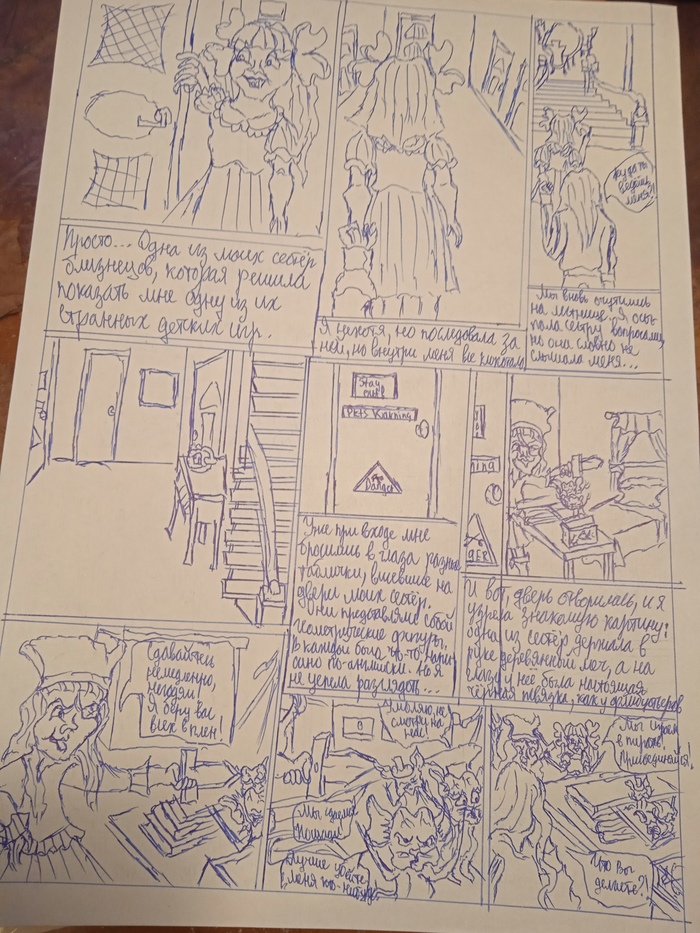 Просто... Одна из моих сестёр
близнецов, которая решила
показать мне одну из их
странных детских игр.
Я нехотя, но последовала за
ней, но внутри меня все клокотало
Куда ты
ведёшь
меня?!
Мы вновь очутились
на лестнице. Я осы
пала сестру вопросами,
но она словно не
слышала меня...
Stay
out!
Warning
Danger
Уже при входе мне
бросились в глаза разные
таблички, висевшие на
двери моих сестёр.
Они представляли собой
геометрические фигуры,
в каждой было что-то напи
сано по-английски. Но я
не успела разглядеть...
ning
GER
И вот, дверь отворилась, и я
узрела знакомую картину:
одна из сестёр держала в
руке деревянный меч, а на
глазу у неё была настоящая
чёрная повязка, как у
Сдавайтесь
немедленно,
негодяи!
Я беру вас
всех в плен!
Умоляю, не
смотри на
нас!
Мы сдаемся
Лучше убейте
меня
Мы играем
в пиратов.
Присоединяйся.
Что Вы
делаете?!